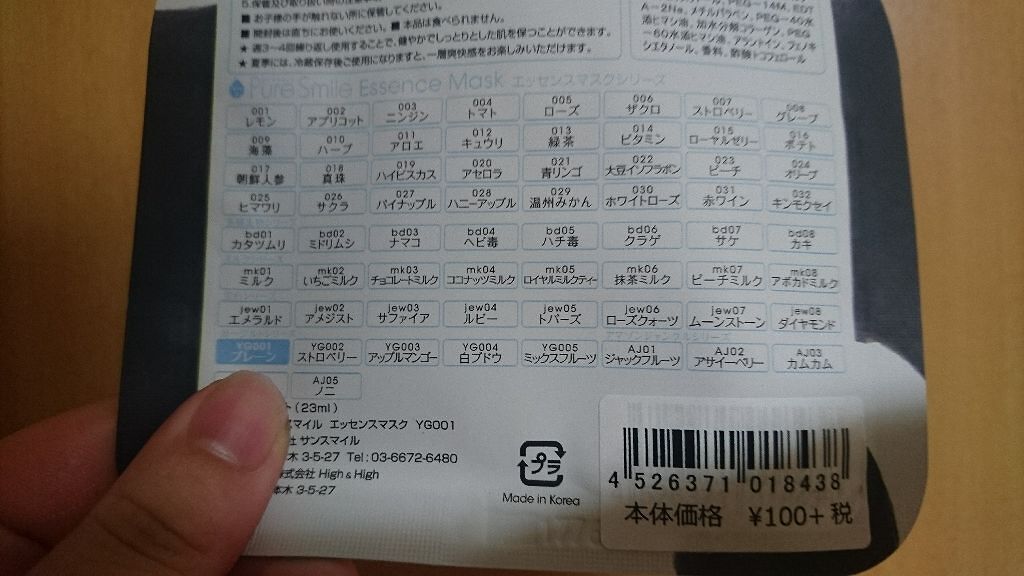 5.保管及び取り扱い時の注意
■ お子様の手が触れない所に保管してください。
■ 開封後は直ちにお使いください。 ■ 本品は食べられません。
★ 週3〜4回繰り返し使用することで、健やかでしっとりとした肌を保つことができます。
★ 夏季には、冷蔵保存後ご使用になりますと、一層爽快感をお楽しみいただけます。
PEG-14M、EDT
A-2Na、メチルパラベン、PEG-40水
添ヒマシ油、加水分解コラーゲン、PEG
-60水添ヒマシ油、アラントイン、フェノキ
シエタノール、香料、酢酸トコフェロール
Pure Smile Essence Mask エッセンスマスクシリーズ
001 002 003 004 005 006 007 008
レモン アプリコット ニンジン トマト ローズ ザクロ ストロベリー グレープ
009 010 011 012 013 014 015 016
海藻 ハーブ アロエ キュウリ 緑茶 ビタミン ローヤルゼリー ポテト
017 018 019 020 021 022 023 024
朝鮮人参 真珠 ハイビスカス アセロラ 青リンゴ 大豆イソフラボン ピーチ オリーブ
025 026 027 028 029 030 031 032
ヒマワリ サクラ パイナップル ハニーアップル 温州みかん ホワイトローズ 赤ワイン キンモクセイ
bd01 bd02 bd03 bd04 bd05 bd06 bd07 bd08
カタツムリ ミドリムシ ナマコ ヘビ毒 ハチ毒 クラゲ サケ カキ
mk01 mk02 mk03 mk04 mk05 mk06 mk07 mk08
ミルク いちごミルク チョコレートミルク ココナッツミルク ロイヤルミルクティー 抹茶ミルク ピーチミルク アボカドミルク
jew01 jew02 jew03 jew04 jew05 jew06 jew07 jew08
エメラルド アメジスト サファイア ルビー トパーズ ローズクォーツ ムーンストーン ダイヤモンド
YG001 YG002 YG003 YG004 YG005 AJ01 AJ02 AJ03
プレーン ストロベリー アップルマンゴー 白ブドウ ミックスフルーツ ジャックフルーツ アサイーベリー カムカム
AJ05
ノニ
(23ml)
スマイル エッセンスマスク YG001
社 サンスマイル
木 3-5-27 Tel:03-6672-6480
式会社 High & High
本木 3-5-27
プラ
Made in Korea
4 526371 018438
本体価格 ¥100+税